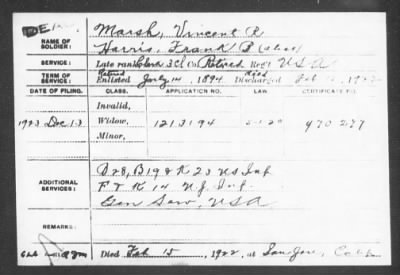 NAME OF SOLDIER: Marsh, Vincent R
Harris, Frank B (alias)
SERVICE: Late rank, 3 Cl Retired Reg't USA
TERM OF SERVICE: Retired Enlisted July 14, 1894 Died Discharged Feb 15, 1922
DATE OF FILING. CLASS. APPLICATION NO. LAW. CERTIFICATE NO.
Invalid,
1923 Dec 13 Widow, 1213194 470277
Minor,
ADDITIONAL SERVICES: D & B 19 & K 23 US Inf
F & K 14 U.S. Inf.
Gen Serv, USA
REMARKS:
Died Feb 15, 1922, at San Jose, Calif